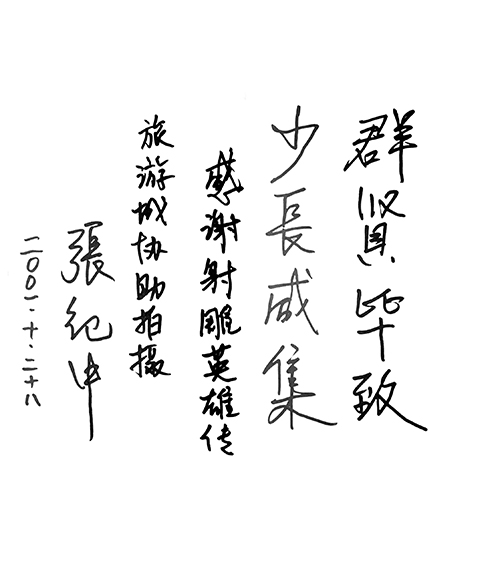 群贤毕致
少長咸集
感谢射雕英雄传
旅游城协助拍摄
張纪中
二〇〇一.十.二十八